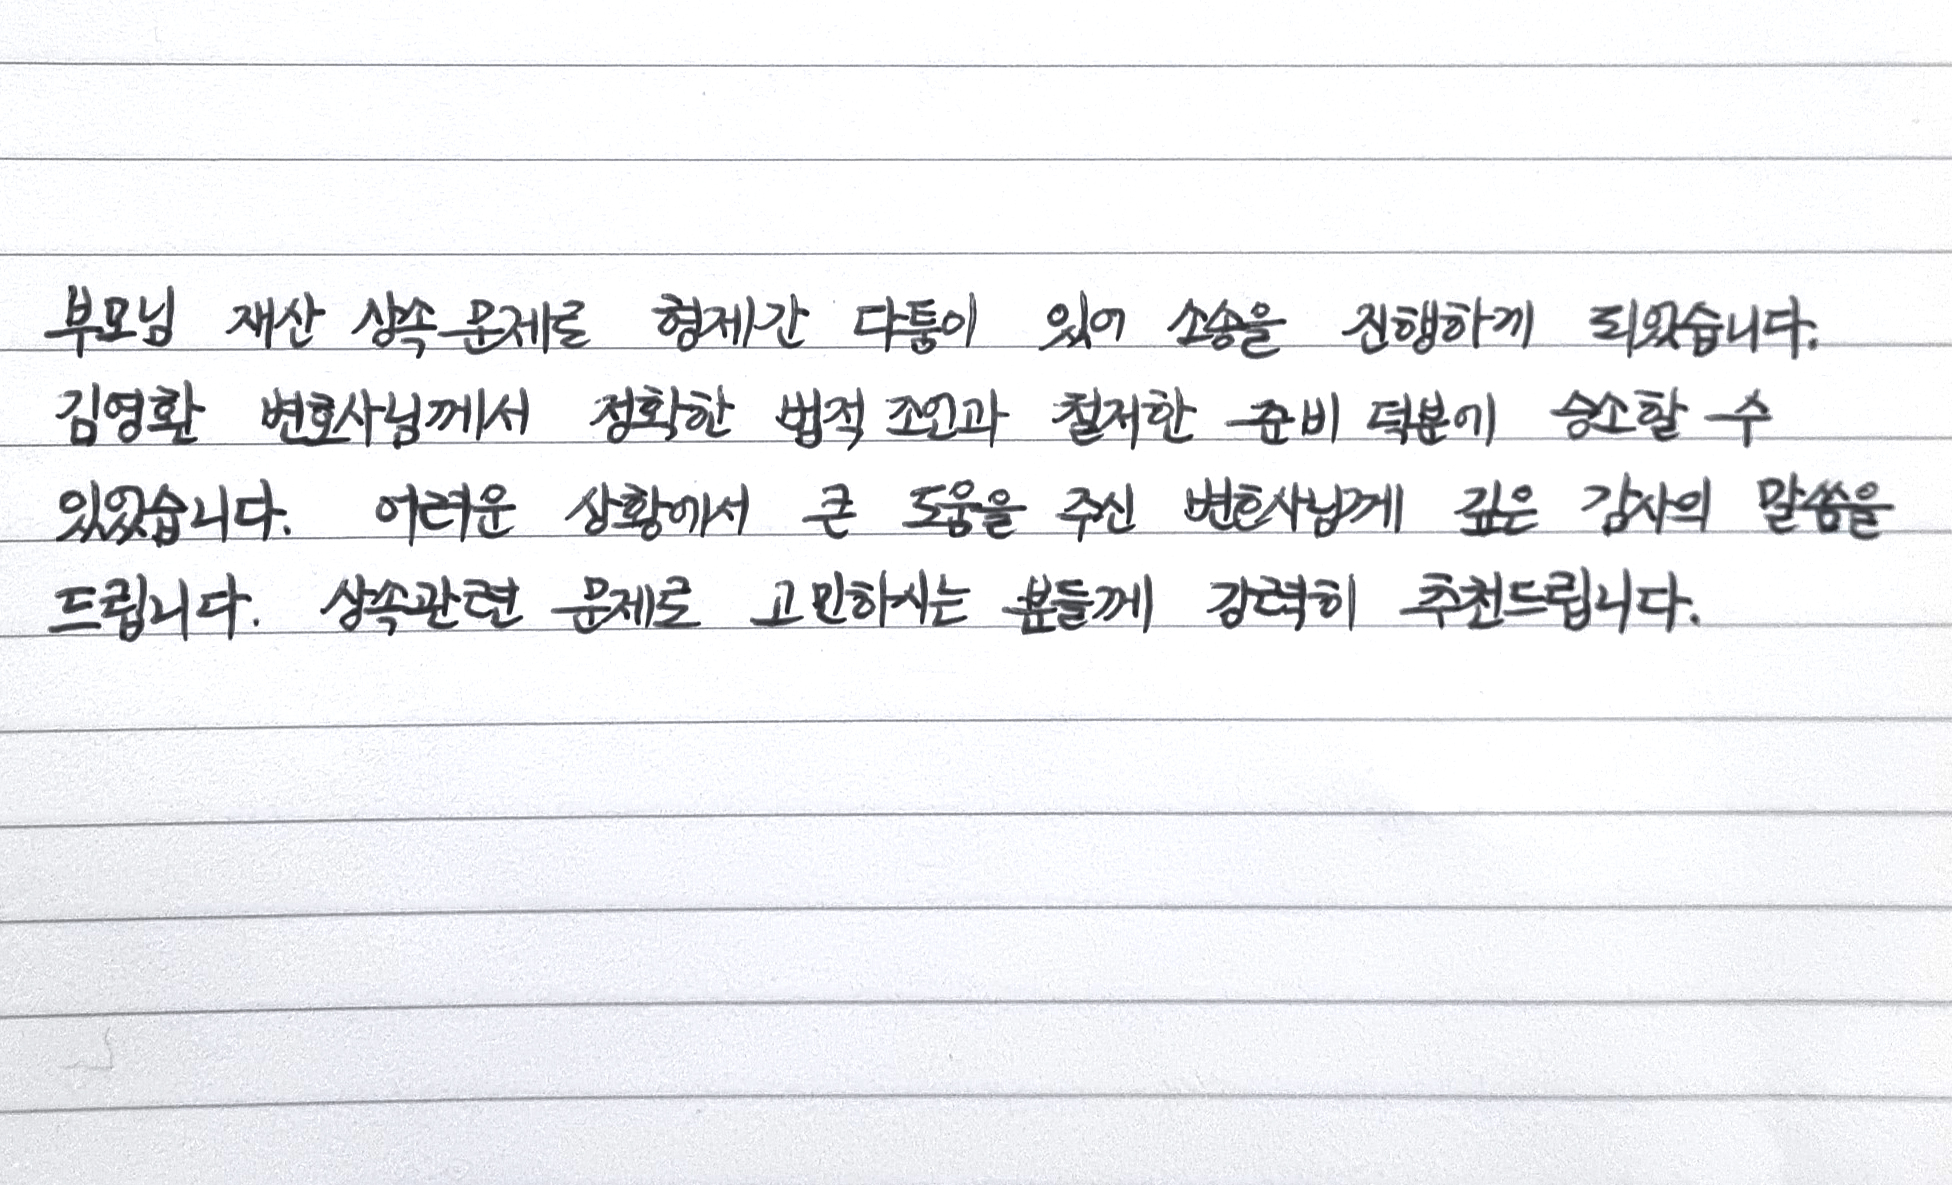 부모님 재산 상속 문제로 형제간 다툼이 있어 소송을 진행하게 되었습니다.
김영환 변호사님께서 정확한 법적 조언과 철저한 준비 덕분에 승소할 수
있었습니다. 어려운 상황에서 큰 도움을 주신 변호사님께 깊은 감사의 말씀을
드립니다. 상속관련 문제로 고민하시는 분들께 강력히 추천드립니다.